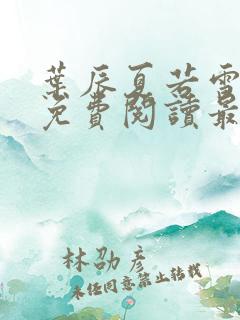 葉辰夏若雪
免費閱讀最
林劭彥
未經同意禁止轉載